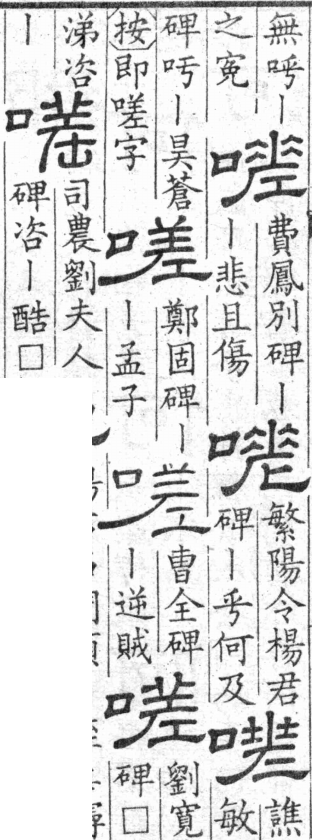 無呼丨
之寃
嗟
費鳳別碑丨
丨悲且傷
嗟
繁陽令楊君
碑丨乎何及
嗟
譙
敏
碑吁丨昊蒼
按即嗟字
嗟
鄭固碑丨
丨孟子
嗟
曹全碑
丨逆賊
嗟
劉寬
碑□
涕咨
丨
嗟
司農劉夫人
碑咨丨酷□